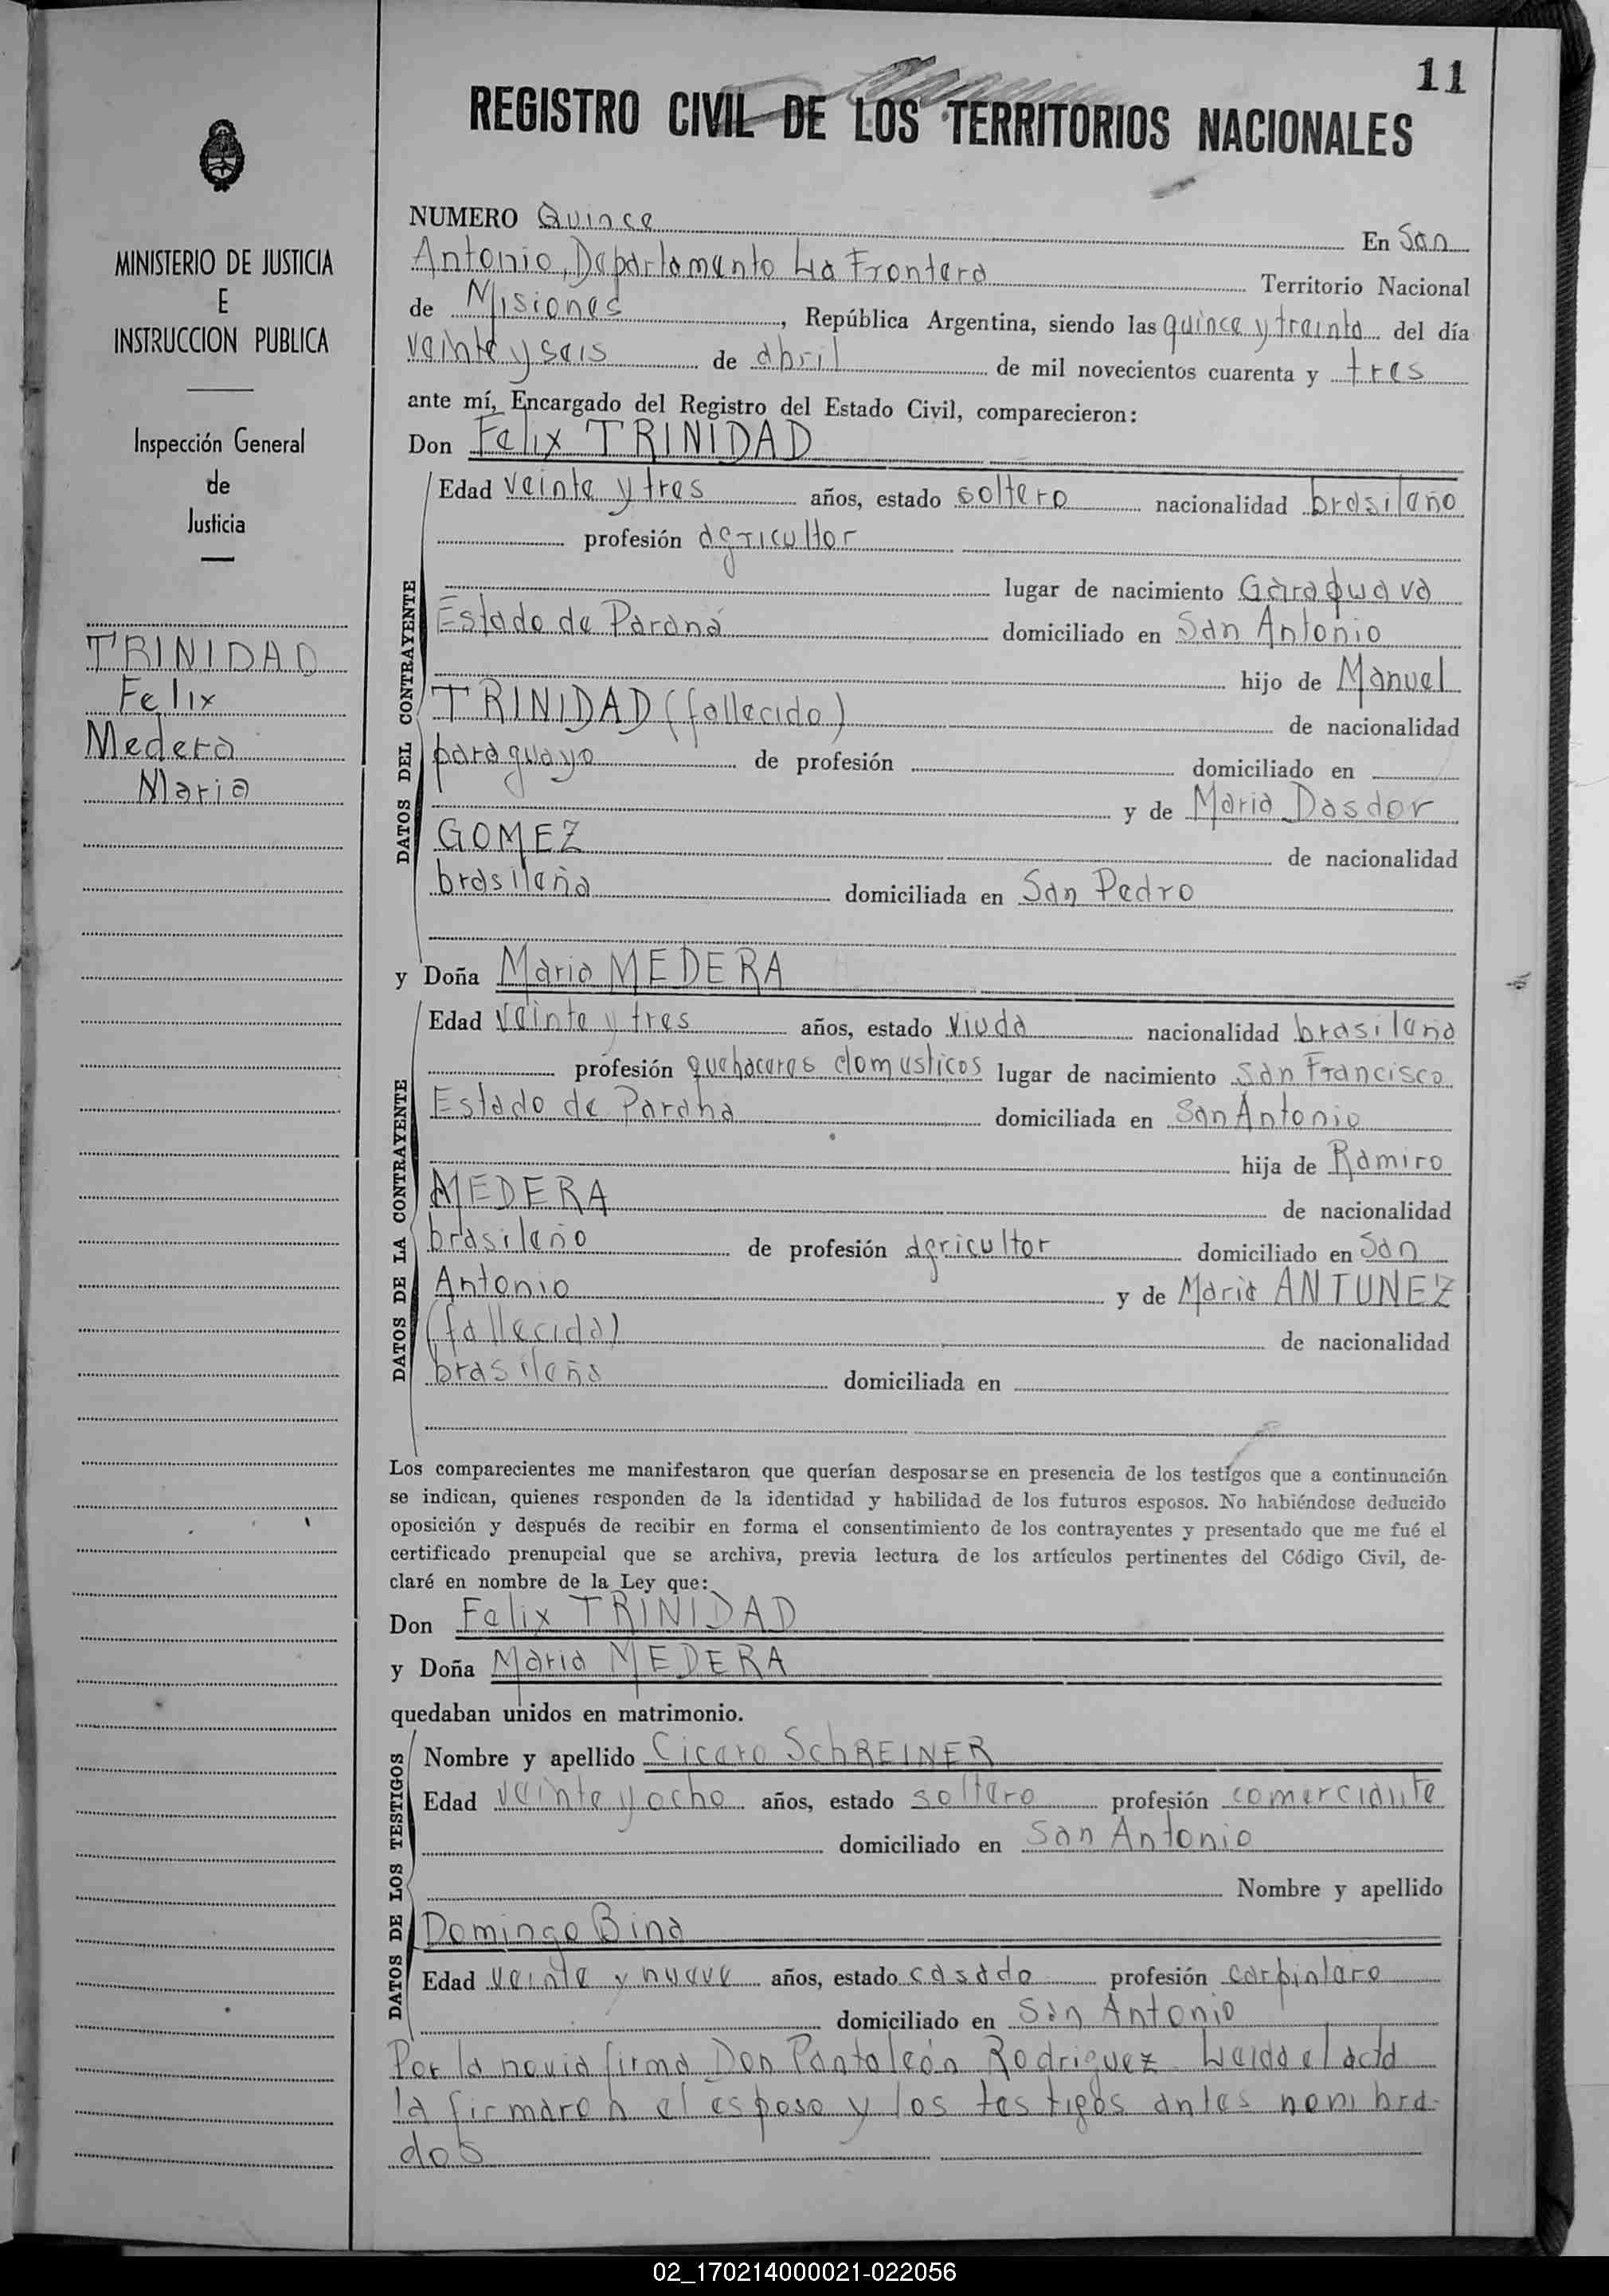 11
REGISTRO CIVIL DE LOS TERRITORIOS NACIONALES
MINISTERIO DE JUSTICIA
E
INSTRUCCION PUBLICA
Inspección General
de
Justicia
TRINIDAD
Felix
Medera
Maria
NUMERO Quince En San
Antonio, Departamento La Frontera Territorio Nacional
de Misiones, República Argentina, siendo las quince y treinta del día
veinte y seis de abril de mil novecientos cuarenta y tres
ante mí, Encargado del Registro del Estado Civil, comparecieron:
Don Felix TRINIDAD
DATOS DEL CONTRAYENTE
Edad veinte y tres años, estado soltero nacionalidad brasileño
profesión agricultor
lugar de nacimiento Garaquava
Estado de Paraná domiciliado en San Antonio
hijo de Manuel
TRINIDAD (fallecido) de nacionalidad
paraguayo de profesión domiciliado en
y de Maria Dasdor
GOMEZ de nacionalidad
brasileña domiciliada en San Pedro
y Doña Maria MEDERA
DATOS DE LA CONTRAYENTE
Edad veinte y tres años, estado viuda nacionalidad brasileña
profesión quehaceres domesticos lugar de nacimiento San Francisco
Estado de Parana domiciliada en San Antonio
hija de Ramiro
MEDERA de nacionalidad
brasileño de profesión agricultor domiciliado en San
Antonio y de Maria ANTUNEZ
(fallecida) de nacionalidad
brasileña domiciliada en
Los comparecientes me manifestaron que querían desposarse en presencia de los testigos que a continuación
se indican, quienes responden de la identidad y habilidad de los futuros esposos. No habiéndose deducido
oposición y después de recibir en forma el consentimiento de los contrayentes y presentado que me fué el
certificado prenupcial que se archiva, previa lectura de los artículos pertinentes del Código Civil, de-
claré en nombre de la Ley que:
Don Felix TRINIDAD
y Doña Maria MEDERA
quedaban unidos en matrimonio.
DATOS DE LOS TESTIGOS
Nombre y apellido Cicero SchREINER
Edad veinte y ocho años, estado soltero profesión comerciante
domiciliado en San Antonio
Nombre y apellido
Domingo Bina
Edad veinte y nueve años, estado casado profesión carpintero
domiciliado en San Antonio
Por la novia firma Don Pantaleón Rodriguez. Leida el acta
la firmaron el esposo y los testigos antes nombra-
dos
02_170214000021-022056